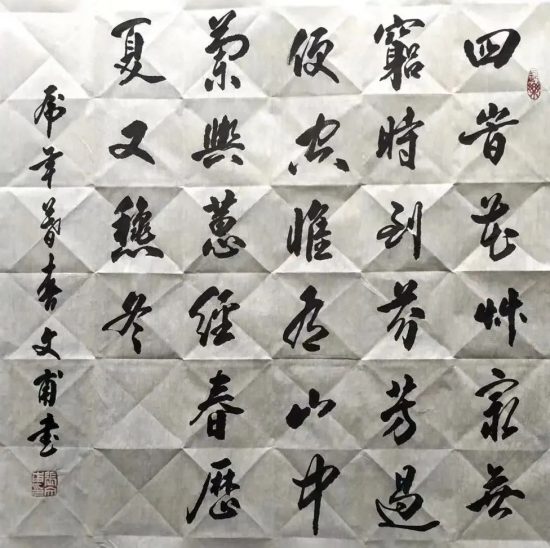 四旹花艸最無
窮時到芬芳過
便空惟有山中
蘭與蕙經春歷
夏又冬
虎年暮春文甫書